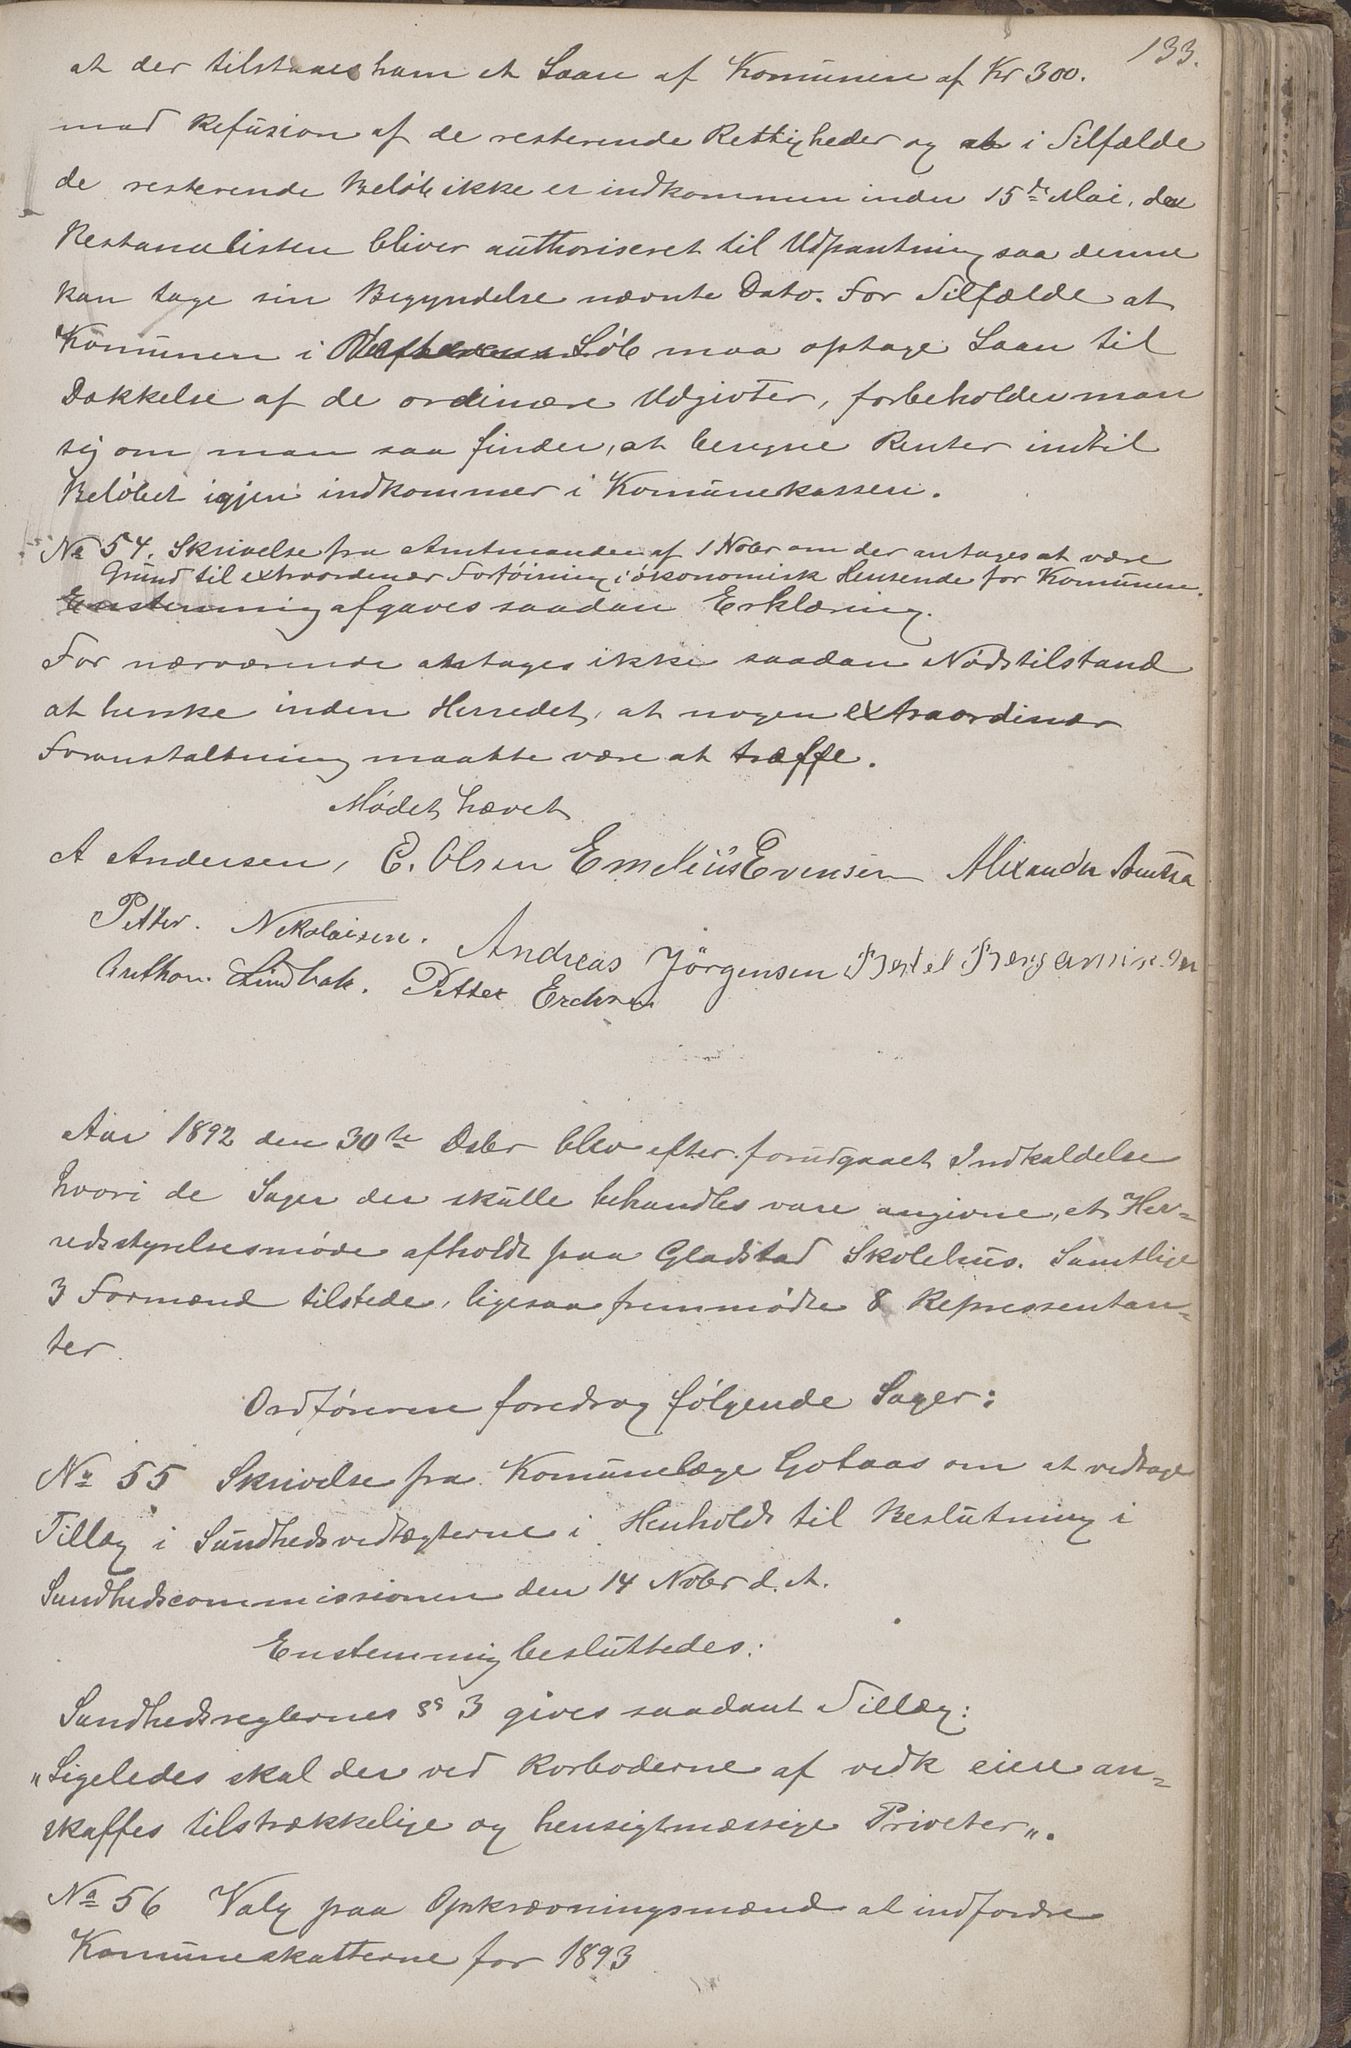 133.
at der tilstaaes ham et Laan af Komunen af Kr 300.
mod Refusion af de resterende Rettigheder og at i Tilfælde
de resterende Beløb ikke er indkommen inden 15de Mai, da
Restancelisten bliver authoriseret til Udpantning saa denne
kan tage sin Begyndelse nævnte Dato. For Tilfælde at
Komunen i Løb maa optage Laan til
Dækkelse af de ordinære Udgivter, forbeholder man
sig om man saa finder, at beregne Renter indtil
Beløbet igjen indkommer i Komunekassen.
No 54. Skrivelse fra Amtmanden af 1 Nobr om der antages at være
Grund til extraordenær Forføining i økonomisk Hensende for Komunen.
Enstemmig afgaves saadan Erklæring.
For nærværende antages ikke saadan Nødstilstand
at herske inden Herredet, at nogen extraordinær
Foranstaltning maatte være at træffe.
Mødet hævet
A Andersen, E. Olsen Emelius Evensen Alexander
Petter. Nikolaisen. Andreas Jörgensen Bertel Benjaminsen
Anthon. Lindbak. Petter
Aar 1892 den 30te Desbr blev efter forudgaaet Indkaldelse
hvori de Sager der skulle behandles vare angivne, et Her=
redsstyrelsesmøde afholdt paa Gladstad Skolehus. Samtlige
3 Formænd tilstede, ligesaa fremmødte 8 Repressentan=
ter.
Ordføreren foredrog følgende Sager:
No 55 Skrivelse fra Komunelæge Gotaas om at vedtage
Tillæg i Sundhedsvedtægterne i Henhold til Beslutning i
Sundhedscommissionen den 14 Nobr d. A.
Enstemmig besluttedes:
Sundhedsreglernes § 3 gives saadant Tillæg:
"Ligeledes skal der ved Rorboderne af vedk eiere an=
skaffes tilstrækkelige og hensigtmæssige Priveter".
No 56 Valg paa Opkrævningsmænd at indfordre
Komuneskatterne for 1893